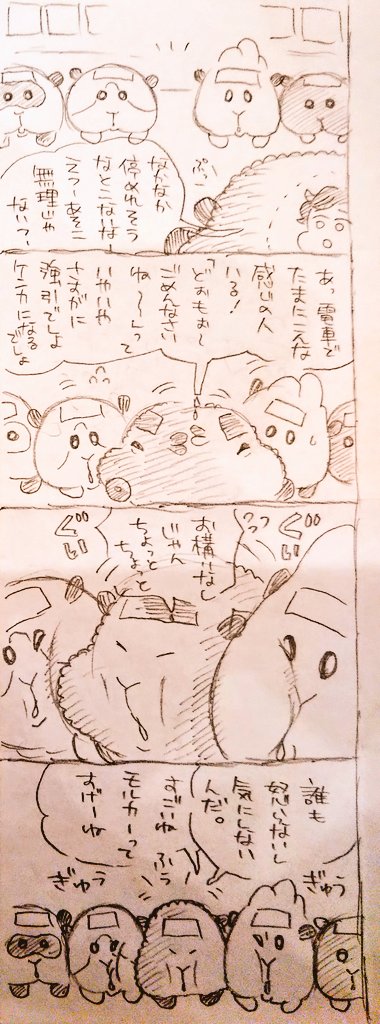 ぷいー
なかなか
停めれそう
なとこないなー
えっ…あそこ
無理じゃ
ないっ…
あっ電車で
たまにこんな
感じの人
いる!
「どおもお〜
ごめんなさい
ね〜〜」って
いやいや
さすがに
強引でしょ
ケンカになる
でしょ
ぐい
お構いなし
じゃん
ちょっと
ちょっと
ぐい
誰も
怒らないし
気にしない
んだ。
すごいね
モルカーって
すげーね
ふぅ
ぎゅう
ぎゅう